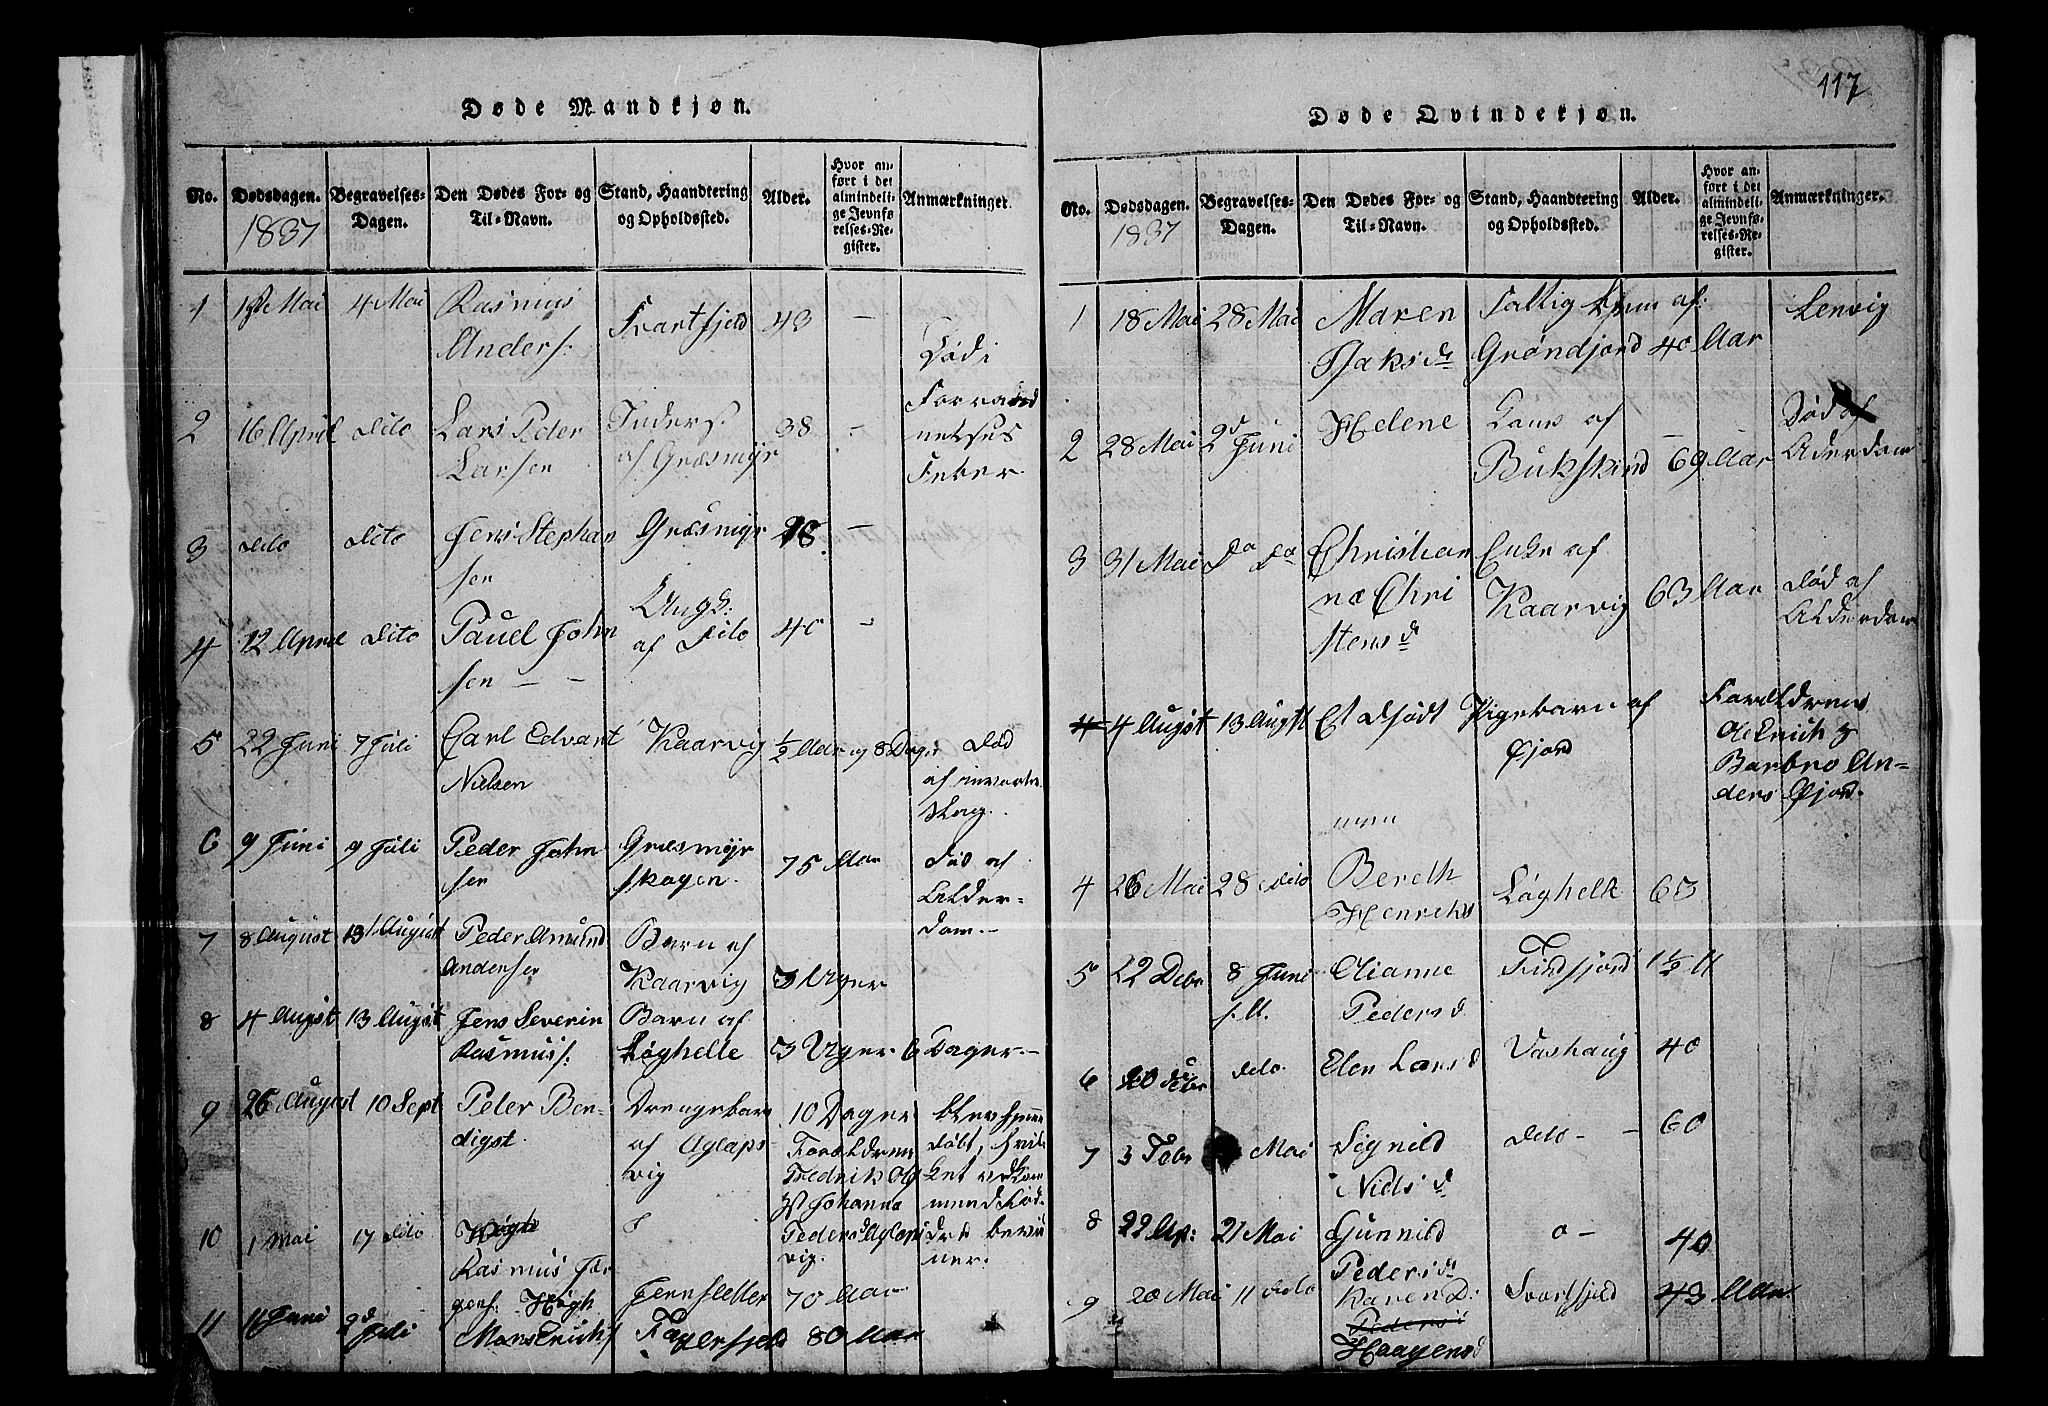 117
Døde Mandkjøn.
No.
Dødsdagen.
1837
Begravelses-
Dagen.
Den Dødes For- og
Til-Navn.
Stand, Haandtering
og Opholdssted.
Alder.
Hvor an-
ført i det
almindeli-
ge Jevnfø-
relses-Re-
gister.
Anmærkninger.
1 Mai 4 Mai Rasmus
Anders. Svartfjeld 43 —
Død i
Forraad
nelses
Feber
2 16 April dito Lars Peder
Larsen
Inders.
af Græsmyr 38 -
3 dito dito Jens Stephan
sen
Græsmyr 28. —
4 12 April dito Pauel John
sen — —
Ungk:
af dito 40 —
5 22 Juni 7 Juli Carl Edvart
Nielsen
Kaarvig 1/2 Aar og 8 Dage
Død
af invortes
Slag.
6 9 Juni 9 Juli Peder John
sen
Græsmyr
skogen. 75 Aar
Død af
Alder-
dom.-
7 8 August 13 August Peder Amund
Andersen
Barn af
Kaarvig 3 Uger
8 4 Augst 13 Augst Jens Severin
Rasmus.
Barn af
Løghelle 3 Uger 6 Dager.-
9 26 August 10 Sept Peter Ben-
digst.
Drengebarn
af Aglaps-
vig
10 Dager
Forældrene
Fredrik Ols
& Johanna
Peders d Aglaps
vig.
blev hjemme
døbt, hvil-
ket ved kom
mende Fad-
dre bevid
ner.
10 1 Mai 17 dito Høgh
Rasmus Jør
gens. Høgh
Jernsletter 70 Aar
11 11 Juni 2d Juli Mons Erichs
Fagerfjeld 80 Aar
Døde Qvindekjøn.
No.
Dødsdagen.
1837
Begravelses-
Dagen.
Den Dødes For- og
Til-Navn.
Stand, Haandtering
og Opholdssted.
Alder.
Hvor an-
ført i det
almindeli-
ge Jevnfø-
relses-Re-
gister.
Anmærkninger.
1 18 Mai 28 Mai Maren
Isaks d
Fattig Lem af:
Grøndjord 40 Aar Lenvig
2 28 Mai 2d Juni Helene Kone af
Bukskind 69 Aar
Død af
Alderdom
3 31 Mai do do Christian
næ Chri
stens d
Enke af
Kaarvig 63 Aar
død af
Alderdom
4 4 Augst 13 Augst Et dødfødt Pigebarn af
Øjord
Forældrene
Ole Erich &
Barbro An-
ders Øjord.
4 26 Mai 28 dito Bereth
Henriks
Løghelle 63
5 22 Debr 8 Juni
f. A.
Elianne
Peders d
Findfjord 1 1/2 A
6 20 Debr dito Elen Lars d Vashaug 40
7 3 Febr Mai Signild
Niels d
dito - - 60
8 22 Ap: 21 Mai Gunnild
Peders d
o - 40
9 20 Mai 11 dito Karen D:
Peders
Haagens d
Svartfjeld 43 Aar